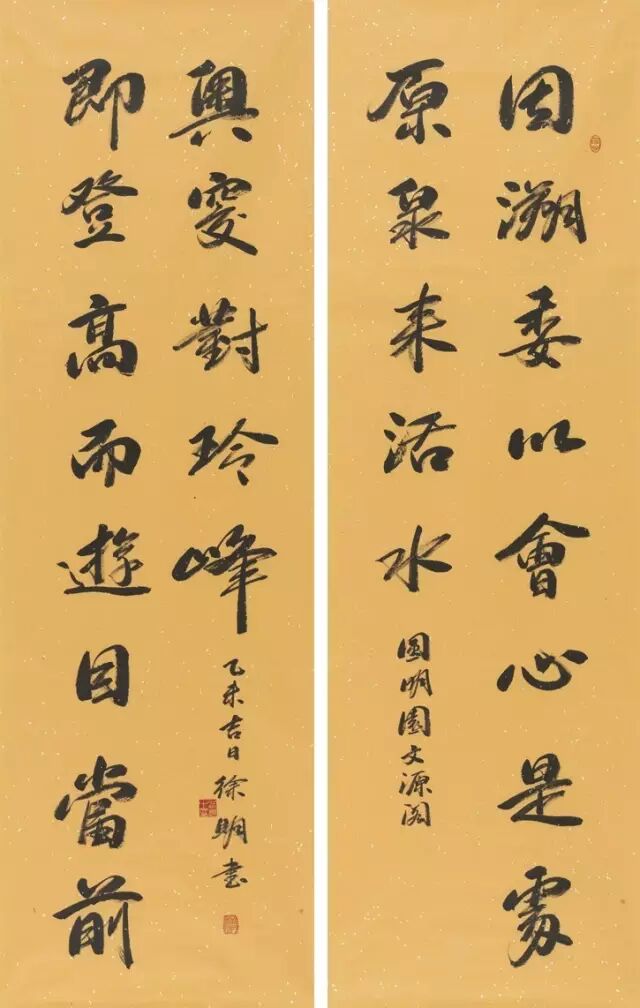 因溯委以會心是處
原泉來活水
圓明園文源閣
即登高而遊目當前
奧窔對玲峰
乙未吉日徐明書